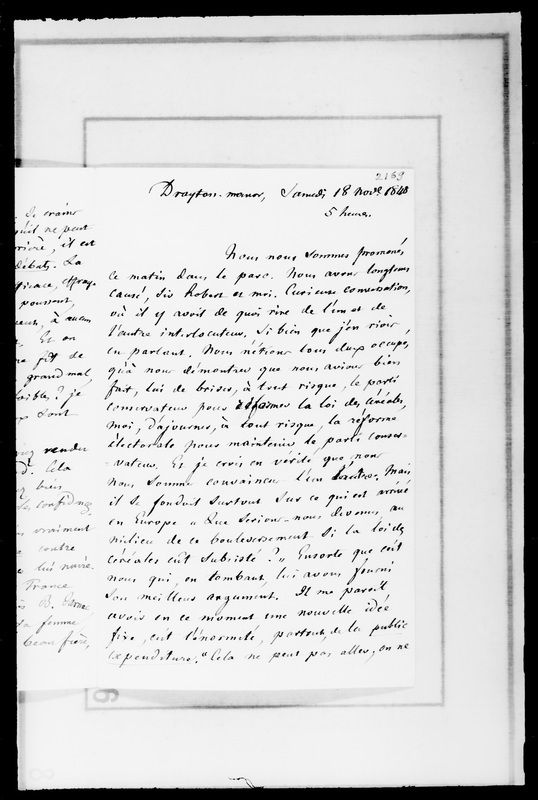 2189
Drayton-manor, Samedi 18 Nov. 1848
5 heures.
Nous nous sommes promenés
ce matin dans le parc. Nous avons longtems
causé, Sir Robert et moi. Curieuse conversation,
où il y avoit de quoi rire de l'un et de
l'autre interlocuteur. Si bien que j'en riois,
en parlant. Nous n'étions tous deux occupés
qu'à nous démontrer que nous avions bien
fait, lui de briser, à tout risque, le parti
conservateur pour réformer la loi des céréales,
moi, d'ajourner, à tout risque, la réforme
électorale pour maintenir le parti conser-
-vateur. Et je crois en vérité que nous
nous sommes convaincus l'un l'autre. Mais
il se fondoit surtout sur ce qui est arrivé
en Europe « Que serions-nous devenus au
milieu de ce bouleversement si la loi des
céréales eût subsisté ? » Ensorte que c'est
nous qui, en tombant, lui avons fourni
son meilleur argument. Il me paroît
avoir en ce moment une nouvelle idée
fixe, c'est l'énormité, partout, de la public
expenditure. « Cela ne peut pas aller ; on ne
Je crains
qu'il ne peut
il est
débats. La
pourront,
à aucun
Et on
fît de
grand mal
? je
sont
rendu
Cela
bien
confiance
vraiment
contre
lui naire.
France
B.
femme,
beau frère,